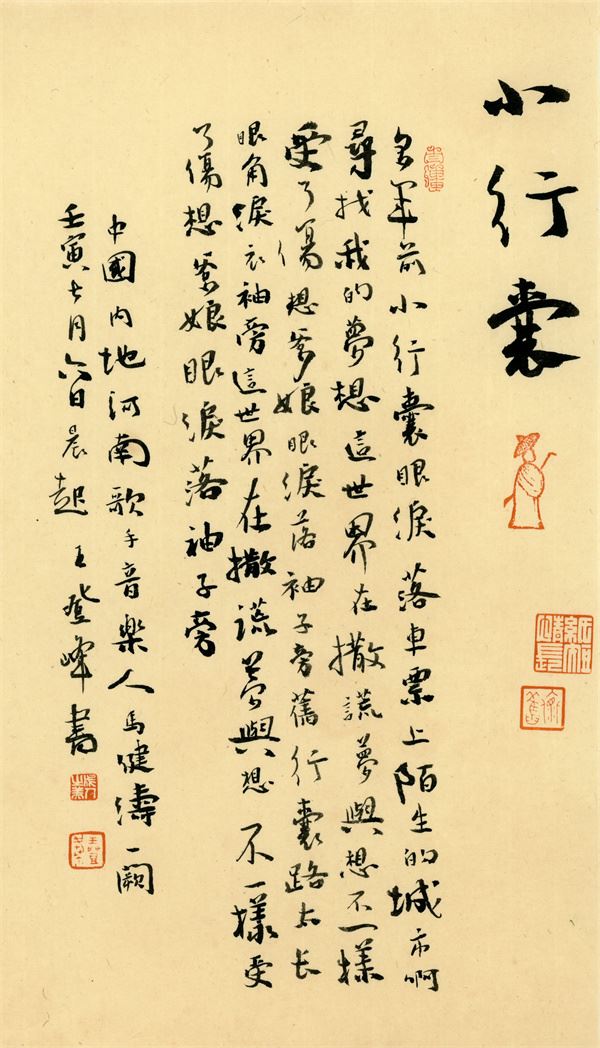 小行囊
多年前小行囊眼淚落車票上陌生的城市啊
尋找我的夢想這世界在撒謊夢與想不一樣
受了傷想爹娘眼淚落袖子旁舊行囊路太長
眼角淚衣袖旁這世界在撒謊夢與想不一樣受
了傷想爹娘眼淚落袖子旁
中國內地河南歌手音樂人馬健濤一闕
壬寅七月六日晨起王登峰書